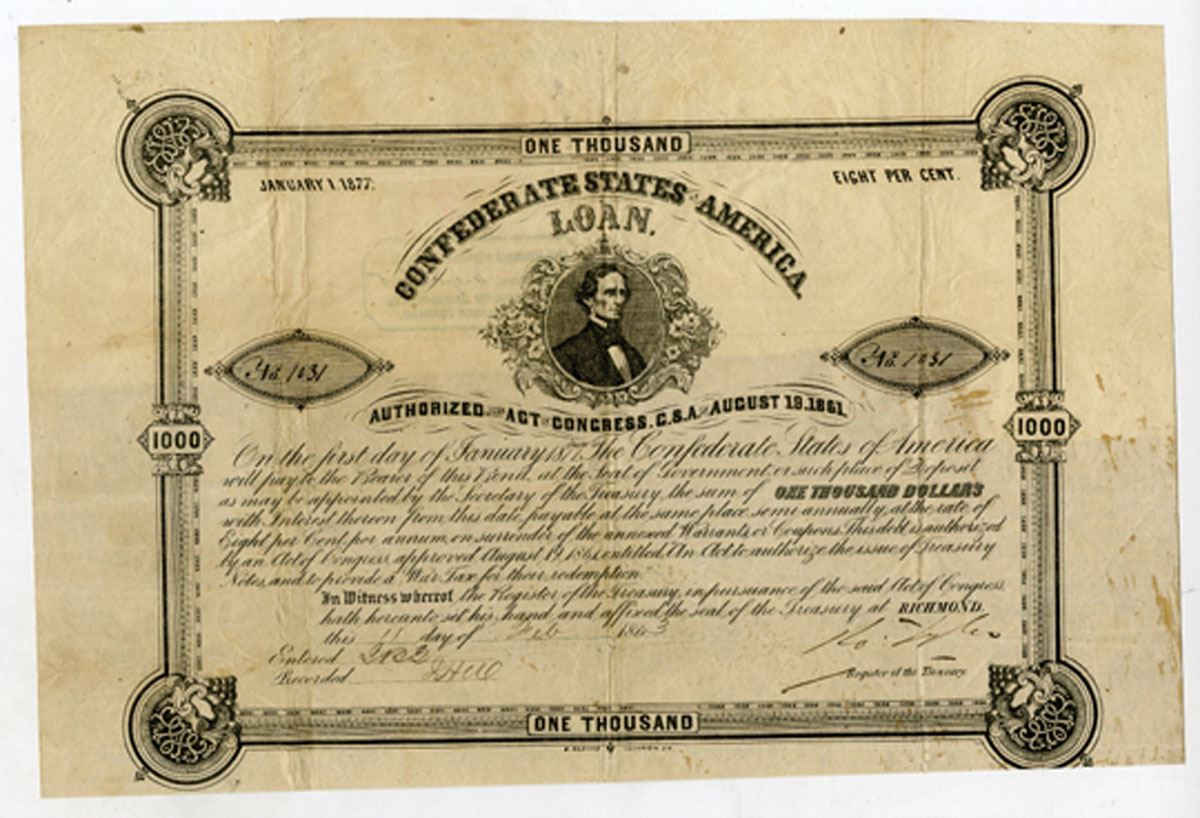 ONE THOUSAND
JANUARY 1. 1877.
EIGHT PER CENT.
CONFEDERATE STATES OF AMERICA.
LOAN.
No. 1031
No. 1031
AUTHORIZED BY THE ACT OF CONGRESS, C.S.A. OF AUGUST 19. 1861.
1000
1000
On the first day of January 1877 The Confederate States of America
will pay to the Bearer of this Bond, at the Seat of Government, or such place of Deposit
as may be appointed by the Secretary of the Treasury, the sum of ONE THOUSAND DOLLARS
with Interest thereon from this date, payable at the same place semi annually, at the rate of
Eight per Cent. per annum, on surrender of the annexed Warrants, or Coupons. This debt is authorized
by an Act of Congress approved August 19. 1861. entitled "An Act to authorize the issue of Treasury
Notes, and to provide a War Tax for their redemption"
In Witness whereof, the Register of the Treasury, in pursuance of the said Act of Congress
hath hereunto set his hand and affixed the seal of the Treasury at RICHMOND.
this 11 day of Feb 1863
Ro. Tyler
Entered
Recorded
Register of the Treasury.
ONE THOUSAND